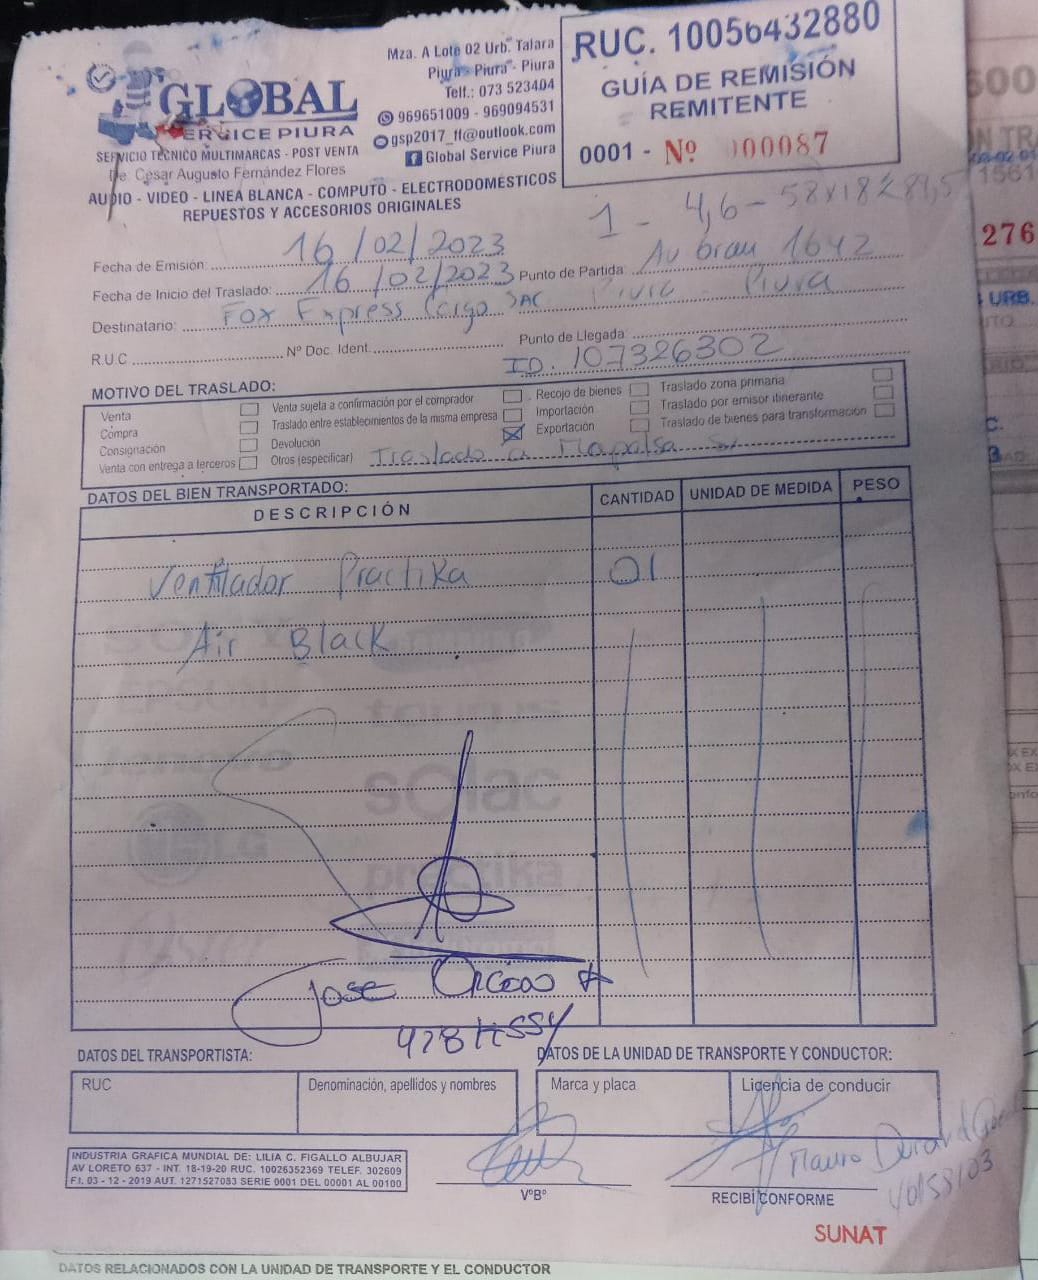 GLOBAL
SERVICE PIURA
SERVICIO TECNICO MULTIMARCAS - POST VENTA
De: Cesar Augusto Fernández Flores
AUDIO - VIDEO - LINEA BLANCA - COMPUTO - ELECTRODOMÉSTICOS
REPUESTOS Y ACCESORIOS ORIGINALES
Mza. A Lote 02 Urb. Talara
Piura - Piura - Piura
Telf.: 073 523404
969651009 - 969094531
gsp2017_ff@outlook.com
Global Service Piura
RUC. 10056432880
GUÍA DE REMISIÓN
REMITENTE
0001 - Nº 000087
1 - 4,6 - 58x18x
Fecha de Emisión: 16/02/2023
Fecha de Inicio del Traslado: 16/02/2023 Punto de Partida: Av Grau 1642
Destinatario: Fox Express Cargo SAC Piura - Piura
R.U.C. Nº Doc. Ident. Punto de Llegada:
ID. 107326302
MOTIVO DEL TRASLADO:
Venta
Compra
Consignación
Venta con entrega a terceros
Venta sujeta a confirmación por el comprador
Traslado entre establecimientos de la misma empresa
Devolución
Otros (especificar) Traslado a
Recojo de bienes
Importación
Exportación
Traslado zona primaria
Traslado por emisor itinerante
Traslado de bienes para transformación
DATOS DEL BIEN TRANSPORTADO:
DESCRIPCIÓN CANTIDAD UNIDAD DE MEDIDA PESO
Ventilador Practika 01
Air Black
solac
LG
praktika
Jose
DATOS DEL TRANSPORTISTA:
RUC Denominación, apellidos y nombres
DATOS DE LA UNIDAD DE TRANSPORTE Y CONDUCTOR:
Marca y placa Licencia de conducir
Mauro Durand
40158103
INDUSTRIA GRAFICA MUNDIAL DE: LILIA C. FIGALLO ALBUJAR
AV LORETO 637 - INT. 18-19-20 RUC. 10026352369 TELEF. 302609
F.I. 03 - 12 - 2019 AUT. 1271527083 SERIE 0001 DEL 00001 AL 00100
VºBº
RECIBÍ CONFORME
SUNAT
DATOS RELACIONADOS CON LA UNIDAD DE TRANSPORTE Y EL CONDUCTOR
276
URB.